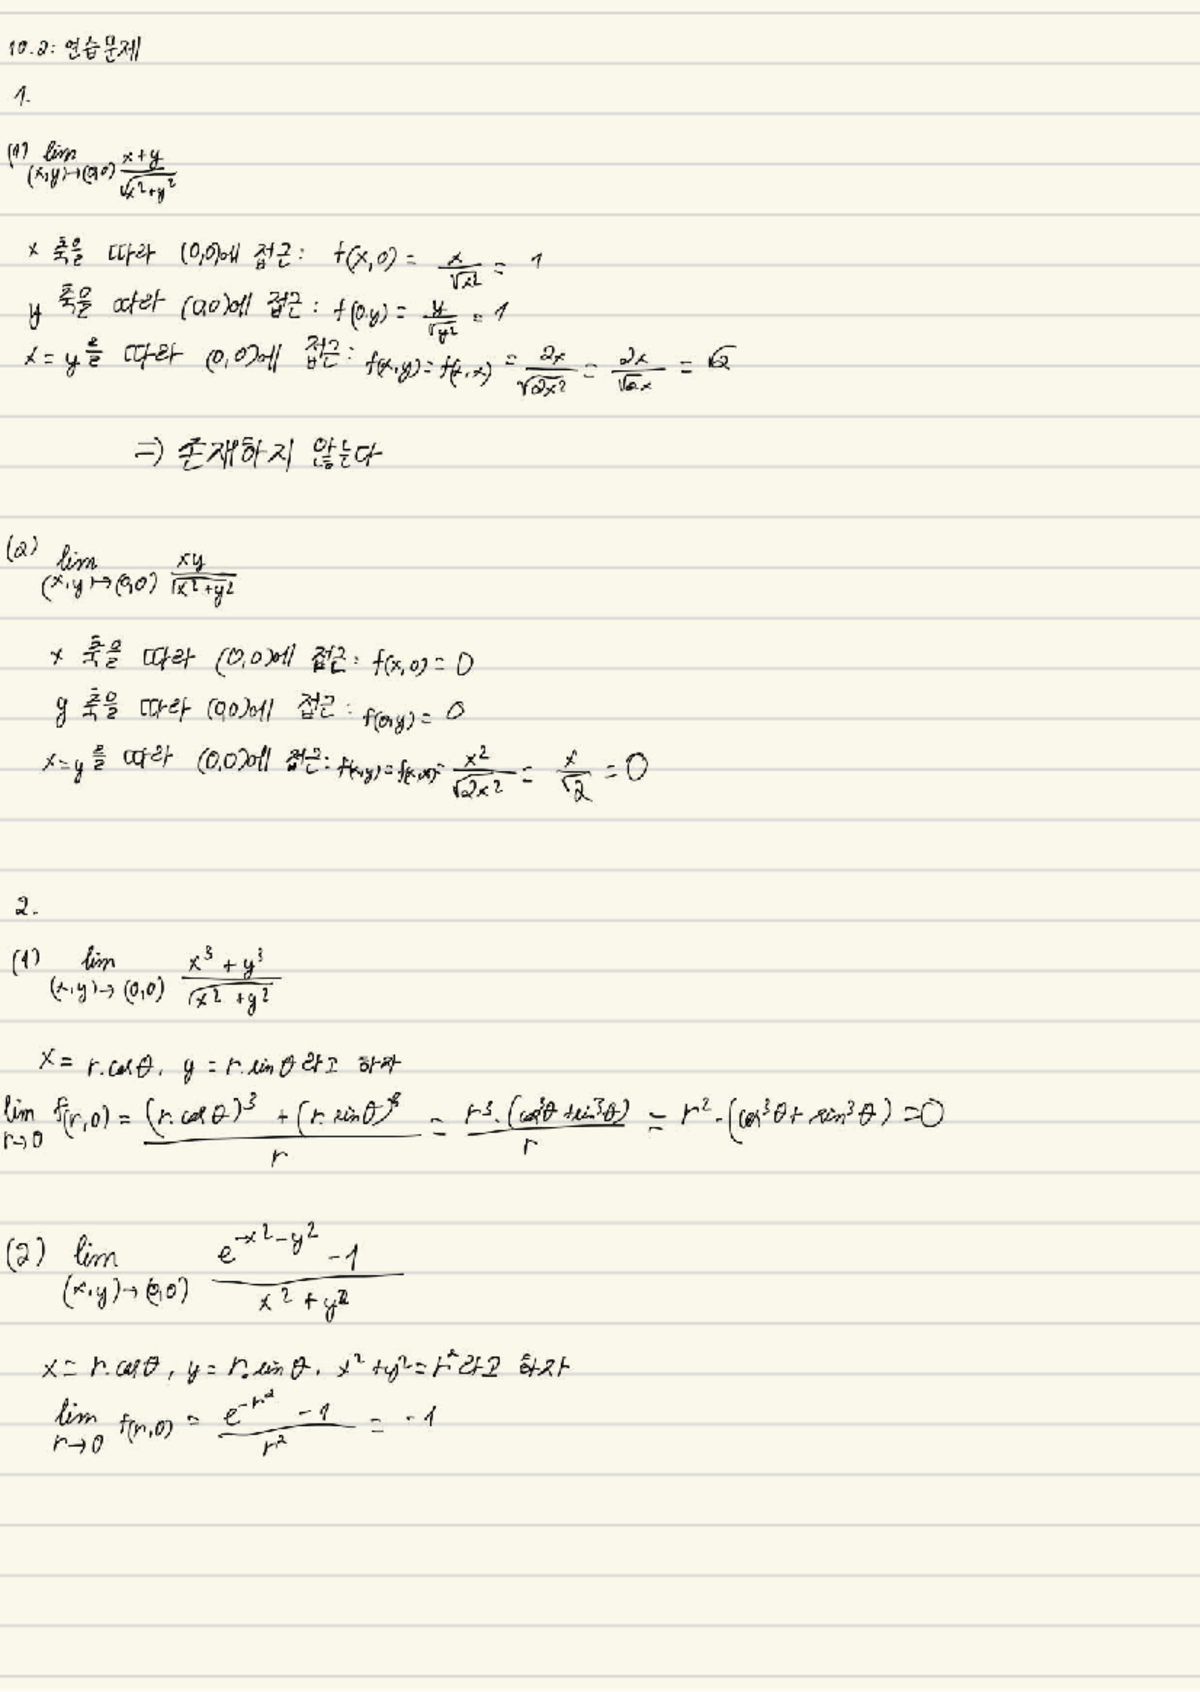 10.2: 연습문제
1.
(1) lim (x,y)→(0,0) (x+y)/√(x²+y²)
x 축을 따라 (0,0)에 접근: f(x,0) = x/√x² = 1
y 축을 따라 (0,0)에 접근: f(0,y) = y/√y² = 1
x=y을 따라 (0,0)에 접근: f(x,y)=f(x,x) = 2x/√(2x²) = 2x/(√2x) = √2
⇒) 존재하지 않는다
(2) lim (x,y)↦(0,0) xy/√(x²+y²)
x 축을 따라 (0,0)에 접근: f(x,0) = 0
y 축을 따라 (0,0)에 접근: f(0,y) = 0
x=y을 따라 (0,0)에 접근: f(x,y)=f(x,x)= x²/√(2x²) = x/√2 = 0
2.
(1) lim (x,y)→(0,0) (x³+y³)/√(x²+y²)
x = r.cosθ, y = r.sinθ라고 하자
lim r→0 f(r,θ) = ((r.cosθ)³ + (r.sinθ)³)/r = r³.(cos³θ+sin³θ)/r = r².(cos³θ+sin³θ) = 0
(2) lim (x,y)→(0,0) (e^(-x²-y²) - 1)/(x²+y²)
x = r.cosθ, y = r.sinθ, x²+y²=r²라고 하자
lim r→0 f(r,θ) = (e^(-r²) - 1)/r² = -1